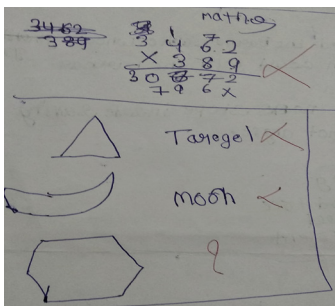 maths
3462
389
3 4 6 2
x 3 8 9
3 0 8 7 2
7 9 6 x
Taregel
moon
?